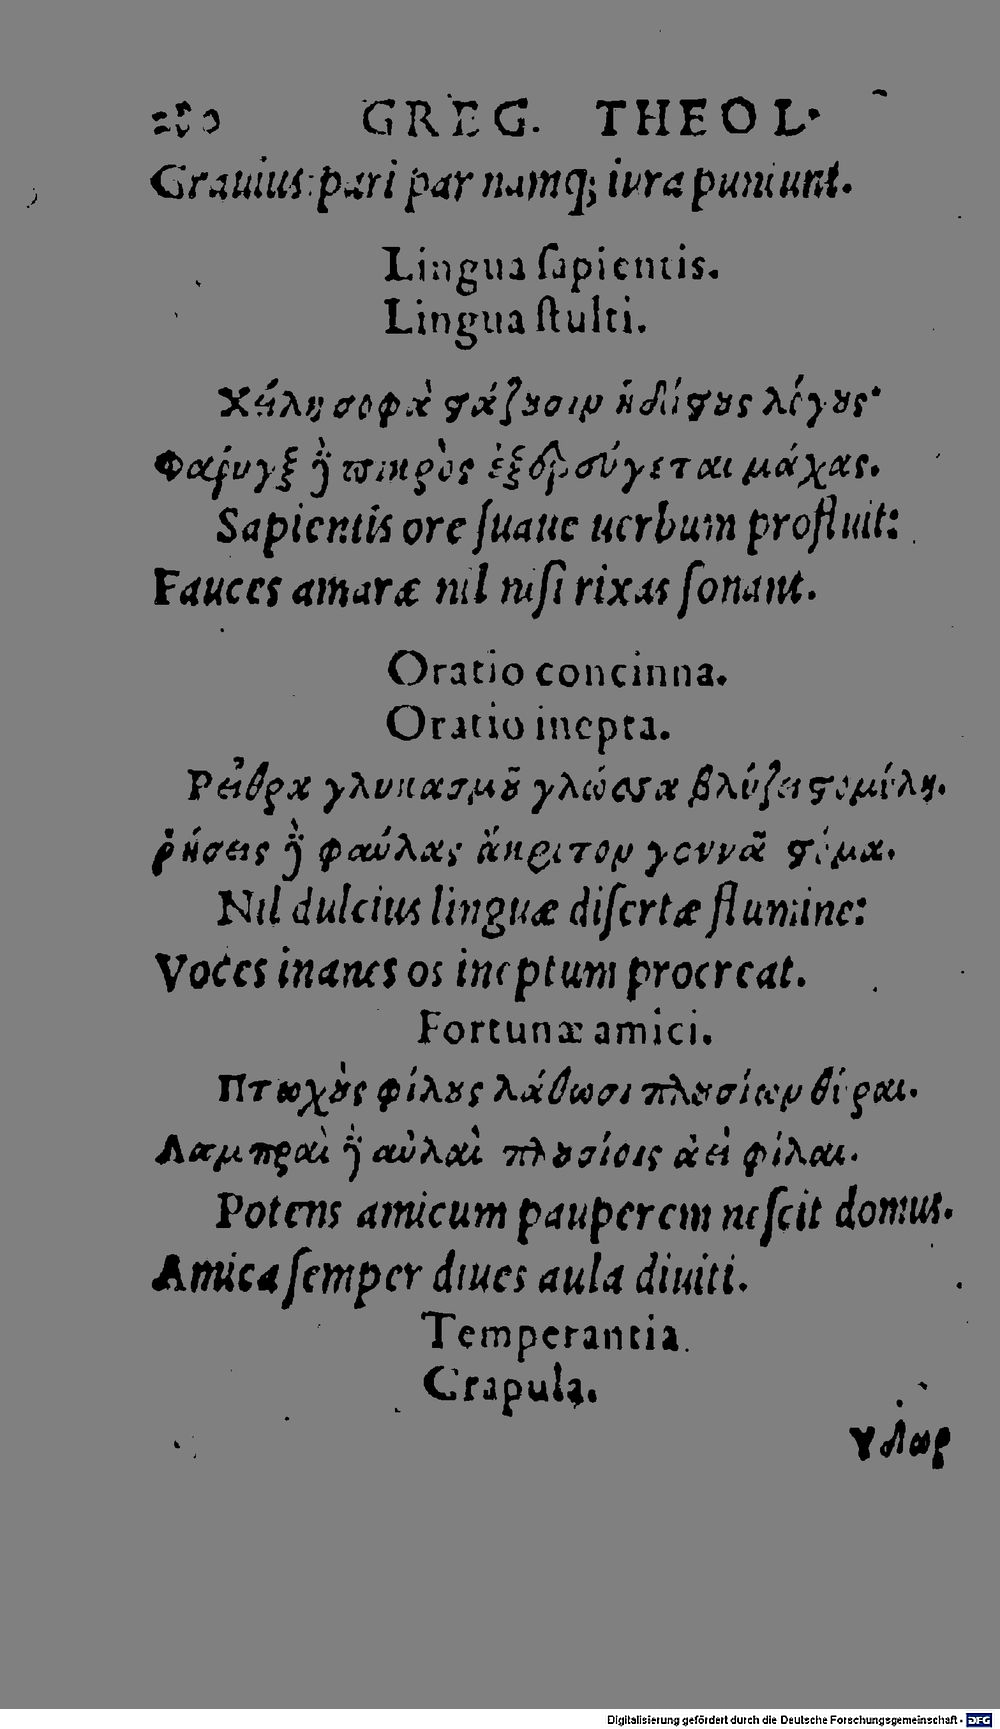 280 GREG. THEOL.
Grauius: pari par namq; iura puniunt.
Lingua sapientis.
Lingua stulti.
Χείλη σοφὰ στάζουσιν ἡδίστους λόγους·
Φαρυγξ ἢ πικρὸς ἐξερεύγεται μάχας.
Sapientis ore suaue uerbum profluit:
Fauces amaræ nil nisi rixas sonant.
Oratio concinna.
Oratio inepta.
Ρεῖθρα γλυκασμοῦ γλῶσσα βλύζει στομύλη.
ῥήσεις δὲ φαύλας ἄκριτον γεννᾷ στόμα.
Nil dulcius linguæ disertæ flumine:
Voces inanes os ineptum procreat.
Fortunæ amici.
Πτωχοὺς φίλους λάθωσι πλουσίων θύραι.
Λαμπραὶ δὲ αὐλαὶ πλουσίοις ἀεὶ φίλαι.
Potens amicum pauperem nescit domus.
Amica semper diues aula diuiti.
Temperantia.
Crapula.
υδωρ
Digitalisierung gefördert durch die Deutsche Forschungsgemeinschaft - DFG